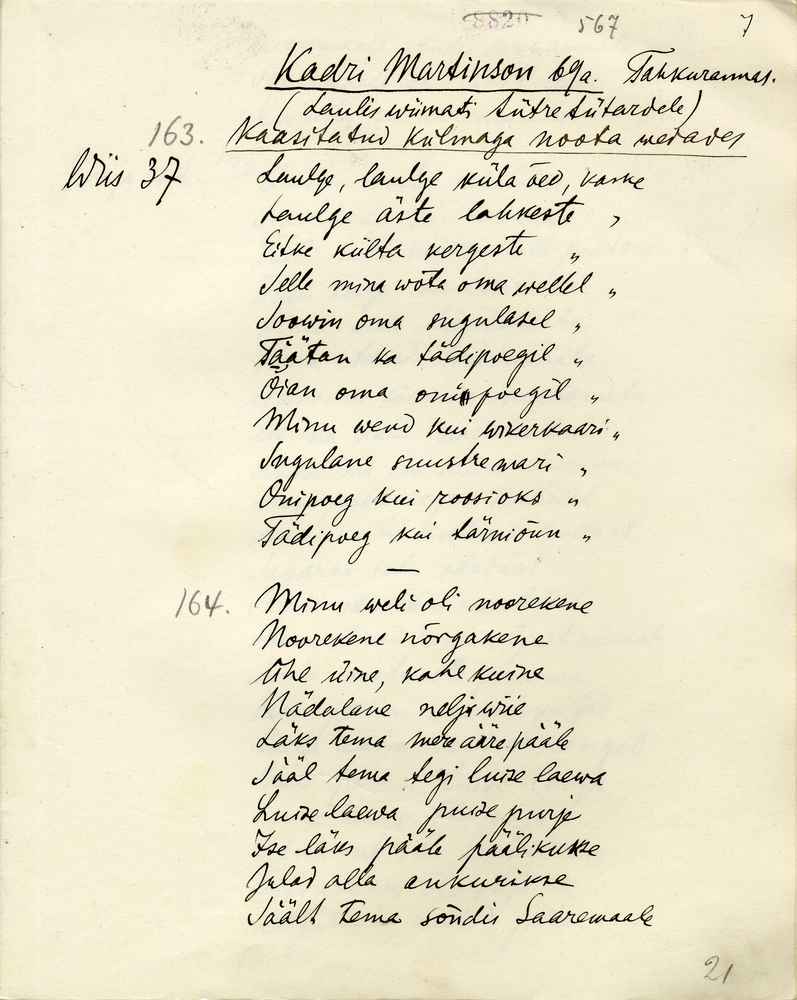 8820 567 7
Kadri Martinson 69a. Tahkurannas.
(Laulis wiimati tütre tütardele)
163. Kaasitatud külmaga noota wedades
Wiis 37 Laulge, laulge küla õed, kaske
Laulge äste lahkeste „
Eitke külta kergeste „
Selle mina wõta oma wellel „
Soowin oma sugulasel „
Täätan ka tädipoegil „
Õian oma onipoegil „
Minu wend kui wikerkaari „
Sugulane suustre mari „
Onipoeg kui roosioks „
Tädipoeg kui tärniõun „
—
164. Minu weli oli noorekene
Noorekene nõrgakene
Ühe üine, kahe kuine
Nädalane nelja wiie
Läks tema mere ääre pääle
Sääl tema tegi luise laewa
Luise laewa puise purje
Ise läks pääle päälikukse
Sulad alla ankurikse
Säält tema sõudis Saaremaale
21